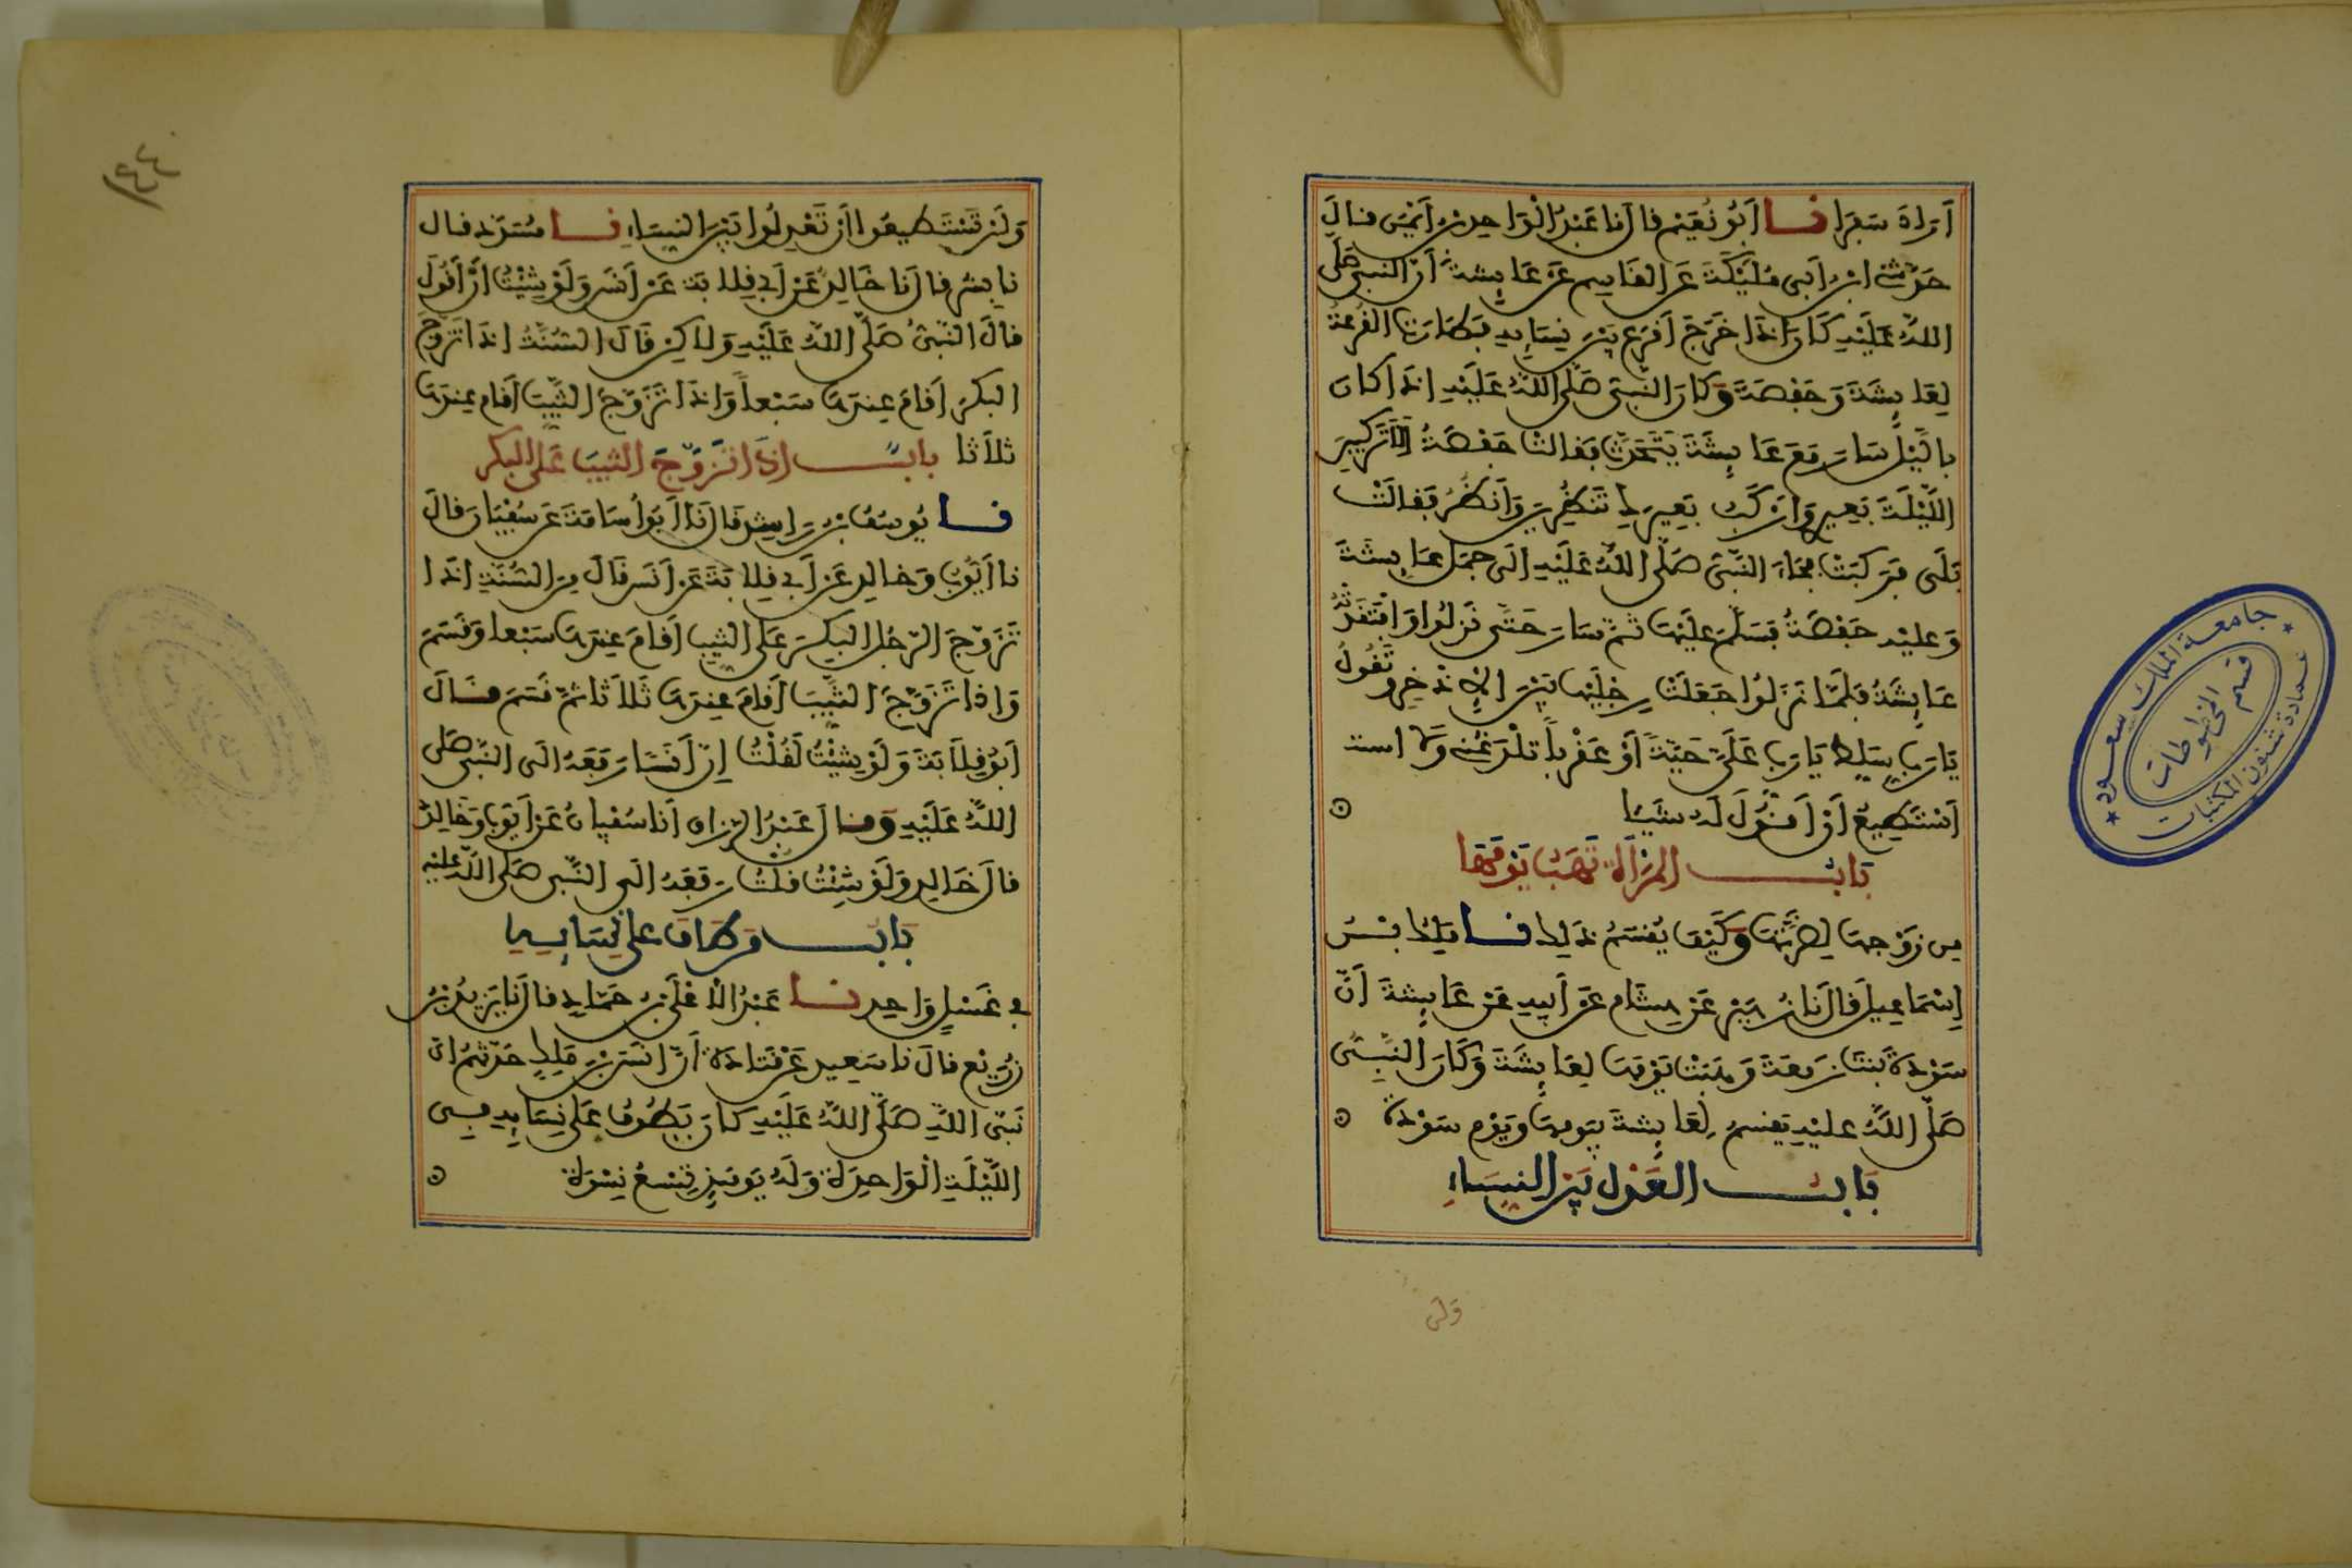 أراد سفرا نا أبو نعيم قال نا عبد الواحد بن أيمن قال
حدثني ابن أبي مليكة عن القاسم عن عايشة أن النبي صلى
الله عليه كان إذا خرج أقرع بين نسايه فطارت القرعة
لعايشة وحفصة وكان النبي صلى الله عليه إذا كان
باليل سار مع عايشة يتحدث فقالت حفصة ألا تركبين
الليلة بعيري وأركب بعيرك تنظرين وأنظر فقالت
بلى فركبت فجاء النبي صلى الله عليه إلى جمل عايشة
وعليه حفصة فسلم عليها ثم سار حتى نزلوا وافتقدته
عايشة فلما نزلوا جعلت رجليها بين الإذخر وتقول
يا رب سلط يا رب علي حية أو عقربا تلدغني ولا
أستطيع أن أقول له شيئا
باب المرأة تهب يومها
من زوجها لضرتها وكيف يقسم ذلك نا ملك بن
إسماعيل قال نا زهير عن هشام عن أبيه عن عايشة أن
سودة بنت زمعة وهبت يومها لعايشة وكان النبي
صلى الله عليه يقسم لعايشة بيومها ويوم سودة
باب العدل بين النساء
ولن
ولن تستطيعوا أن تعدلوا بين النساء نا مسدد قال
نا بشر قال نا خالد عن أبي قلابة عن أنس ولو شيت أن أقول
قال النبي صلى الله عليه ولاكن قال السنة إذا تزوج
البكر أقام عندها سبعا وإذا تزوج الثيب أقام عندها
ثلاثا باب إذا تزوج الثيب على البكر
نا يوسف بن راشد قال نا أبو أسامة عن سفيان قال
نا أيوب وخالد عن أبي قلابة عن أنس قال من السنة إذا
تزوج الرجل البكر على الثيب أقام عندها سبعا وقسم
وإذا تزوج الثيب أقام عندها ثلاثا ثم قسم قال
أبو قلابة ولو شيت لقلت إن أنسا رفعه الى النبي صلى
الله عليه وقال عبد الرزاق أنا سفيان عن أيوب وخالد
قال خالد ولو شيت قلت رفعه الى النبي صلى الله عليه
باب من طاف على نسايه
في غسل واحد نا عبد الأعلى بن حماد قال نا يزيد بن
زريع قال نا سعيد عن قتادة أن أنس بن ملك حدثهم أن
نبي الله صلى الله عليه كان يطوف على نسايه في
الليلة الواحدة وله يوميذ تسع نسوة
جامعة الملك سعود
عمادة شئون المكتبات
قسم المخطوطات